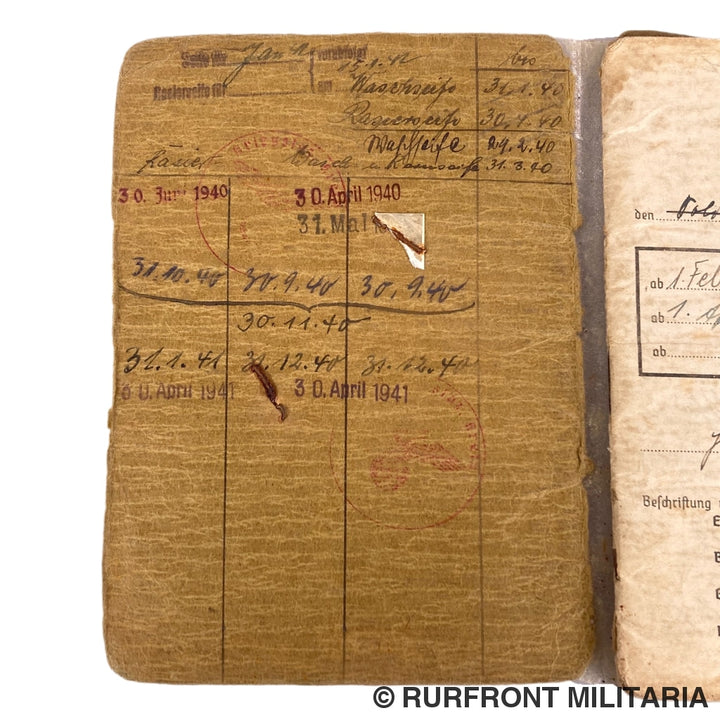 Seife für Jan
Rasierseife für
verabfolgt
15.1.41
am
bis
Waschseife 31.1.40
Rasierseife 30.4.40
Waschseife 29.2.40
31.3.40
30. Juni 1940 30. April 1940
31. Mai
31.10.40 30.9.40 30.9.40
30.11.40
31.1.41 31.12.40 31.12.40
30. April 1941 30. April 1941
den
ab 1. Feb
ab 1.
ab
Beschriftung
© RURFRONT MILITARIA